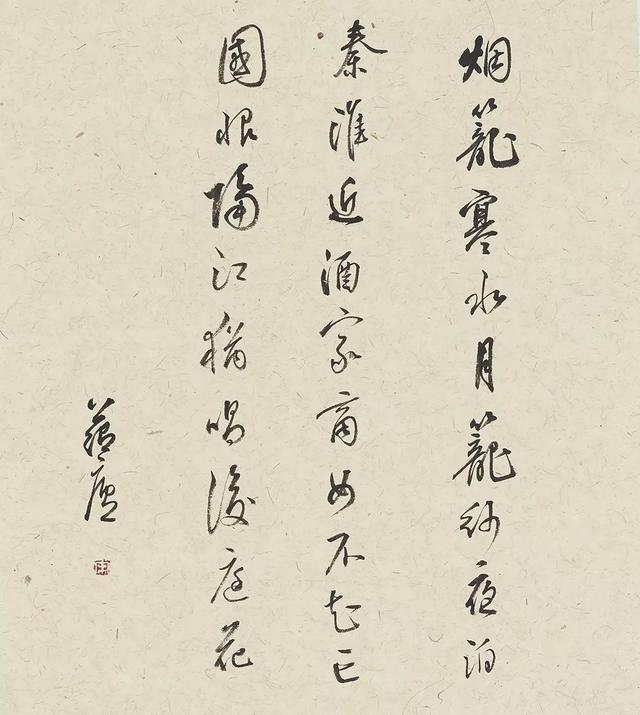 烟籠寒水月籠紗夜泊
秦淮近酒家商女不知亡
國恨隔江猶唱後庭花